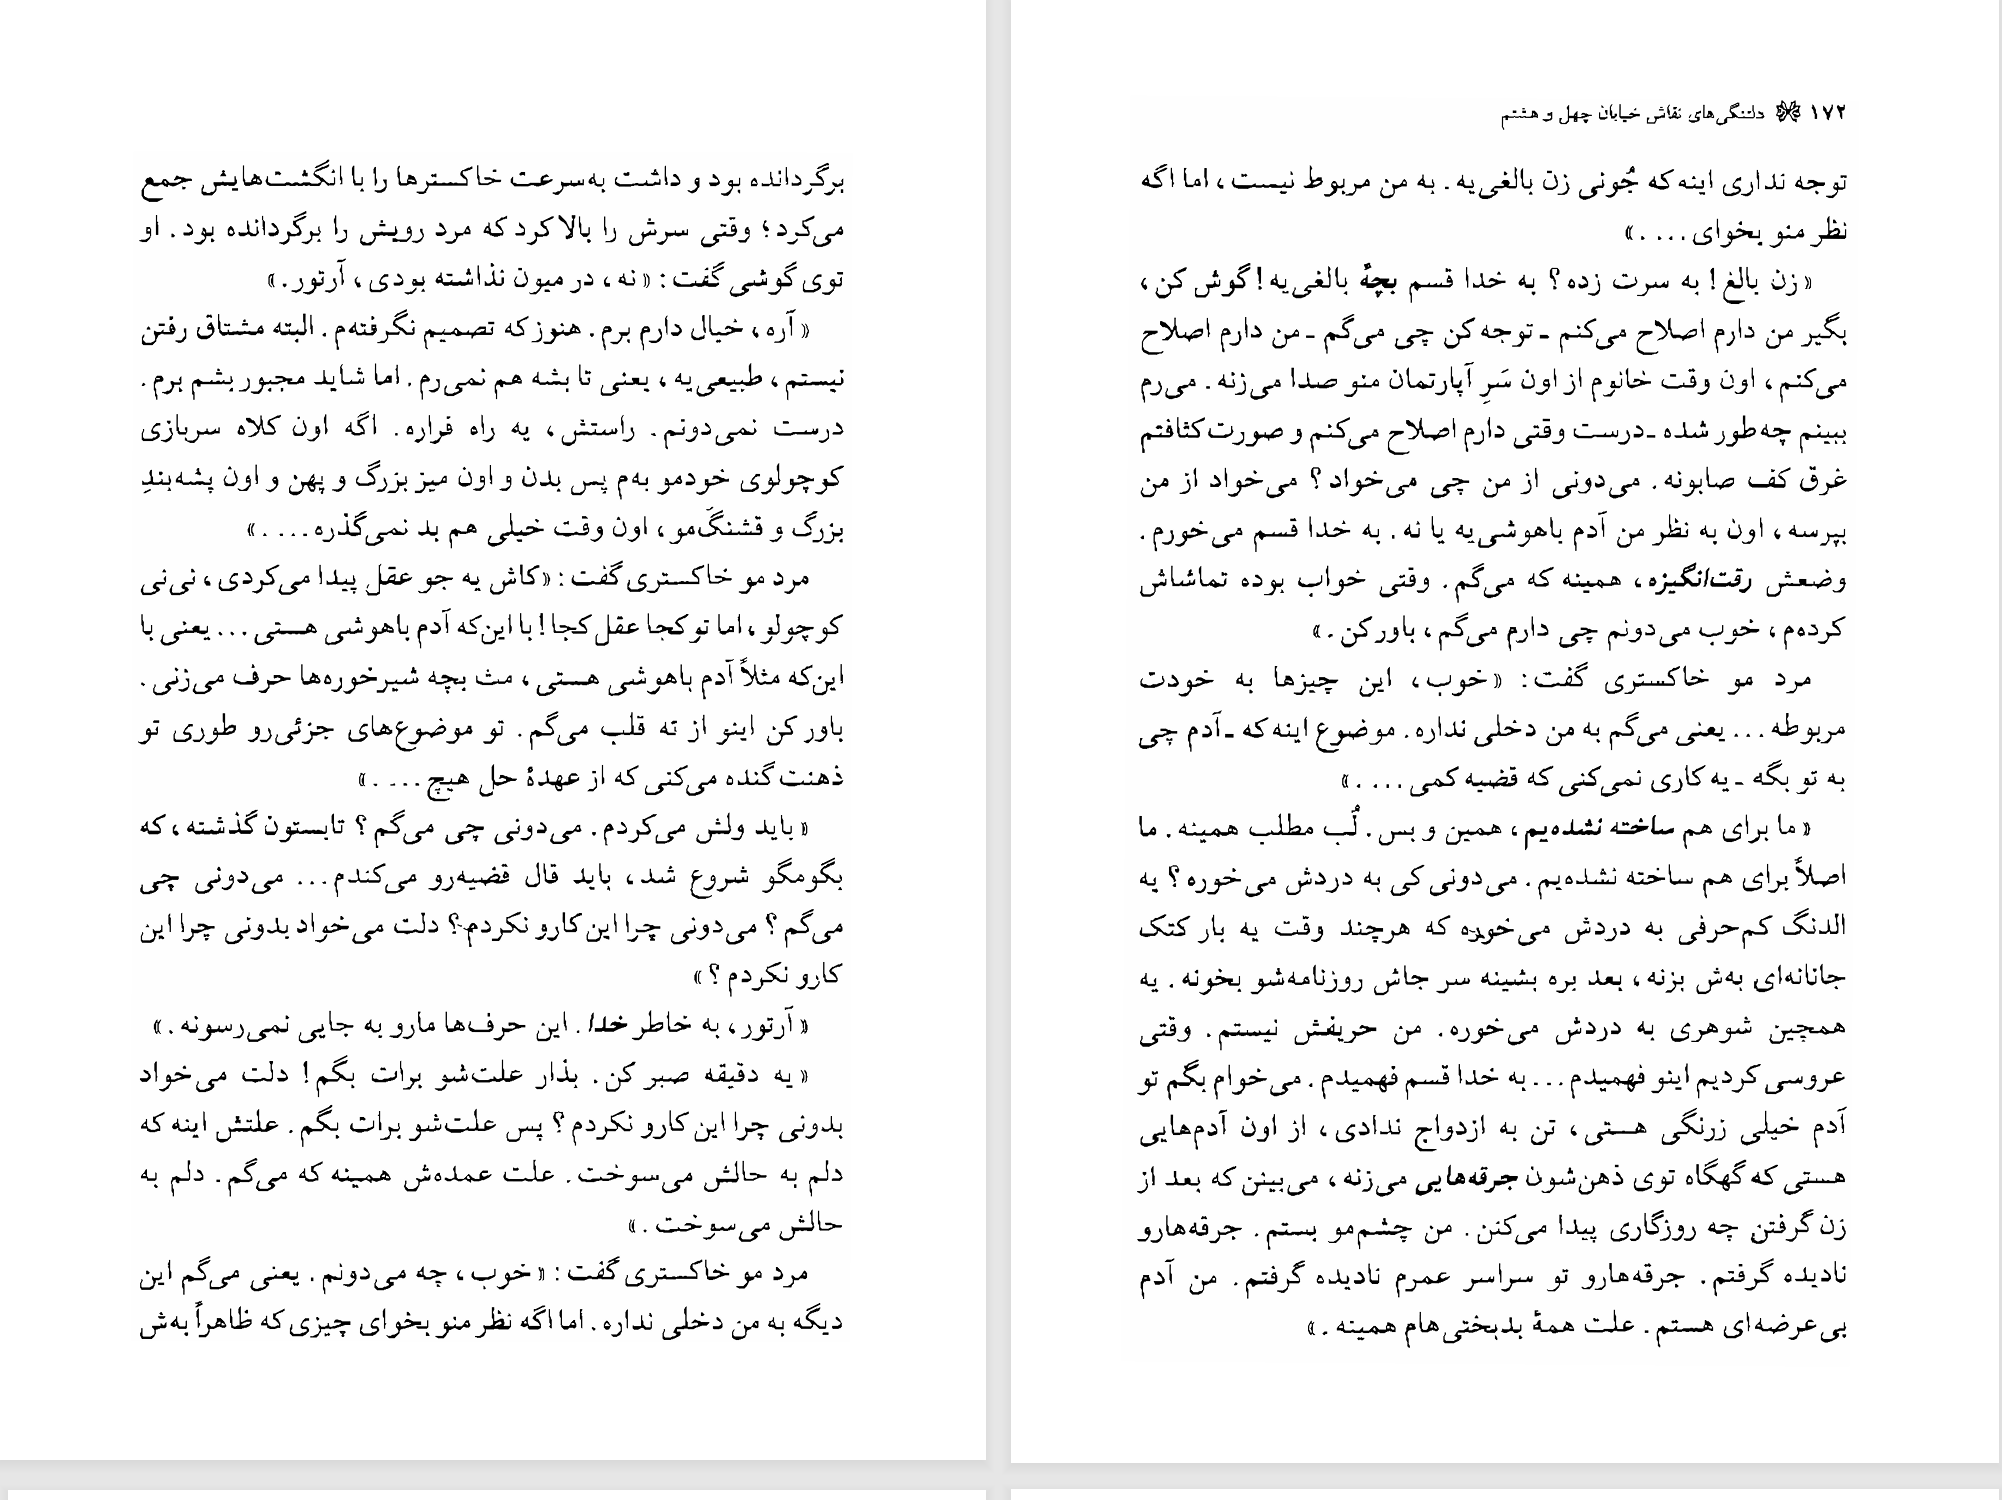 برگردانده بود و داشت به‌سرعت خاکسترها را با انگشت‌هایش جمع
می‌کرد؛ وقتی سرش را بالا کرد که مرد رویش را برگردانده بود. او
توی گوشی گفت: «نه، در میون نذاشته بودی، آرتور.»
«آره، خیال دارم برم. هنوز که تصمیم نگرفته‌م. البته مشتاق رفتن
نیستم، طبیعی‌یه، یعنی تا بشه هم نمی‌رم. اما شاید مجبور بشم برم.
درست نمی‌دونم. راستش، یه راه فراره. اگه اون کلاه سربازی
کوچولوی خودمو به‌م پس بدن و اون میز بزرگ و پهن و اون پشه‌بندِ
بزرگ و قشنگَ‌مو، اون وقت خیلی هم بد نمی‌گذره....»
مرد مو خاکستری گفت: «کاش یه جو عقل پیدا می‌کردی، نی‌نی
کوچولو، اما تو کجا عقل کجا! با این‌که آدم باهوشی هستی... یعنی با
این‌که مثلاً آدم باهوشی هستی، مث بچه شیرخوره‌ها حرف می‌زنی.
باور کن اینو از ته قلب می‌گم. تو موضوع‌های جزئی‌رو طوری تو
ذهنت گنده می‌کنی که از عهدهٔ حل هیچ....»
«باید ولش می‌کردم. می‌دونی چی می‌گم؟ تابستون گذشته، که
بگومگو شروع شد، باید قال قضیه‌رو می‌کندم... می‌دونی چی
می‌گم؟ می‌دونی چرا این کارو نکردم؟ دلت می‌خواد بدونی چرا این
کارو نکردم؟»
«آرتور، به خاطر خدا. این حرف‌ها مارو به جایی نمی‌رسونه.»
«یه دقیقه صبر کن. بذار علت‌شو برات بگم! دلت می‌خواد
بدونی چرا این کارو نکردم؟ پس علت‌شو برات بگم. علتش اینه که
دلم به حالش می‌سوخت. علت عمده‌ش همینه که می‌گم. دلم به
حالش می‌سوخت.»
مرد مو خاکستری گفت: «خوب، چه می‌دونم. یعنی می‌گم این
دیگه به من دخلی نداره. اما اگه نظر منو بخوای چیزی که ظاهراً به‌ش
۱۷۲ دلتنگی‌های نقاش خیابان چهل و هشتم
توجه نداری اینه که جُونی زن بالغی‌یه. به من مربوط نیست، اما اگه
نظر منو بخوای....»
«زن بالغ! به سرت زده؟ به خدا قسم بچهٔ بالغی‌یه! گوش کن،
بگیر من دارم اصلاح می‌کنم ـ توجه کن چی می‌گم ـ من دارم اصلاح
می‌کنم، اون وقت خانوم از اون سَرِ آپارتمان منو صدا می‌زنه. می‌رم
ببینم چه‌طور شده ـ درست وقتی دارم اصلاح می‌کنم و صورت کثافتم
غرق کف صابونه. می‌دونی از من چی می‌خواد؟ می‌خواد از من
بپرسه، اون به نظر من آدم باهوشی‌یه یا نه. به خدا قسم می‌خورم.
وضعش رقت‌انگیزه، همینه که می‌گم. وقتی خواب بوده تماشاش
کرده‌م، خوب می‌دونم چی دارم می‌گم، باور کن.»
مرد مو خاکستری گفت: «خوب، این چیزها به خودت
مربوطه... یعنی می‌گم به من دخلی نداره. موضوع اینه که ـ آدم چی
به تو بگه ـ یه کاری نمی‌کنی که قضیه کمی....»
«ما برای هم ساخته نشده‌یم، همین و بس. لُب مطلب همینه. ما
اصلاً برای هم ساخته نشده‌یم. می‌دونی کی به دردش می‌خوره؟ یه
الدنگ کم‌حرفی به دردش می‌خوره که هرچند وقت یه بار کتک
جانانه‌ای به‌ش بزنه، بعد بره بشینه سر جاش روزنامه‌شو بخونه. یه
همچین شوهری به دردش می‌خوره. من حریفش نیستم. وقتی
عروسی کردیم اینو فهمیدم... به خدا قسم فهمیدم. می‌خوام بگم تو
آدم خیلی زرنگی هستی، تن به ازدواج ندادی، از اون آدم‌هایی
هستی که گهگاه توی ذهن‌شون جرقه‌هایی می‌زنه، می‌بینن که بعد از
زن گرفتن چه روزگاری پیدا می‌کنن. من چشم‌مو بستم. جرقه‌هارو
نادیده گرفتم. جرقه‌هارو تو سراسر عمرم نادیده گرفتم. من آدم
بی‌عرضه‌ای هستم. علت همهٔ بدبختی‌هام همینه.»